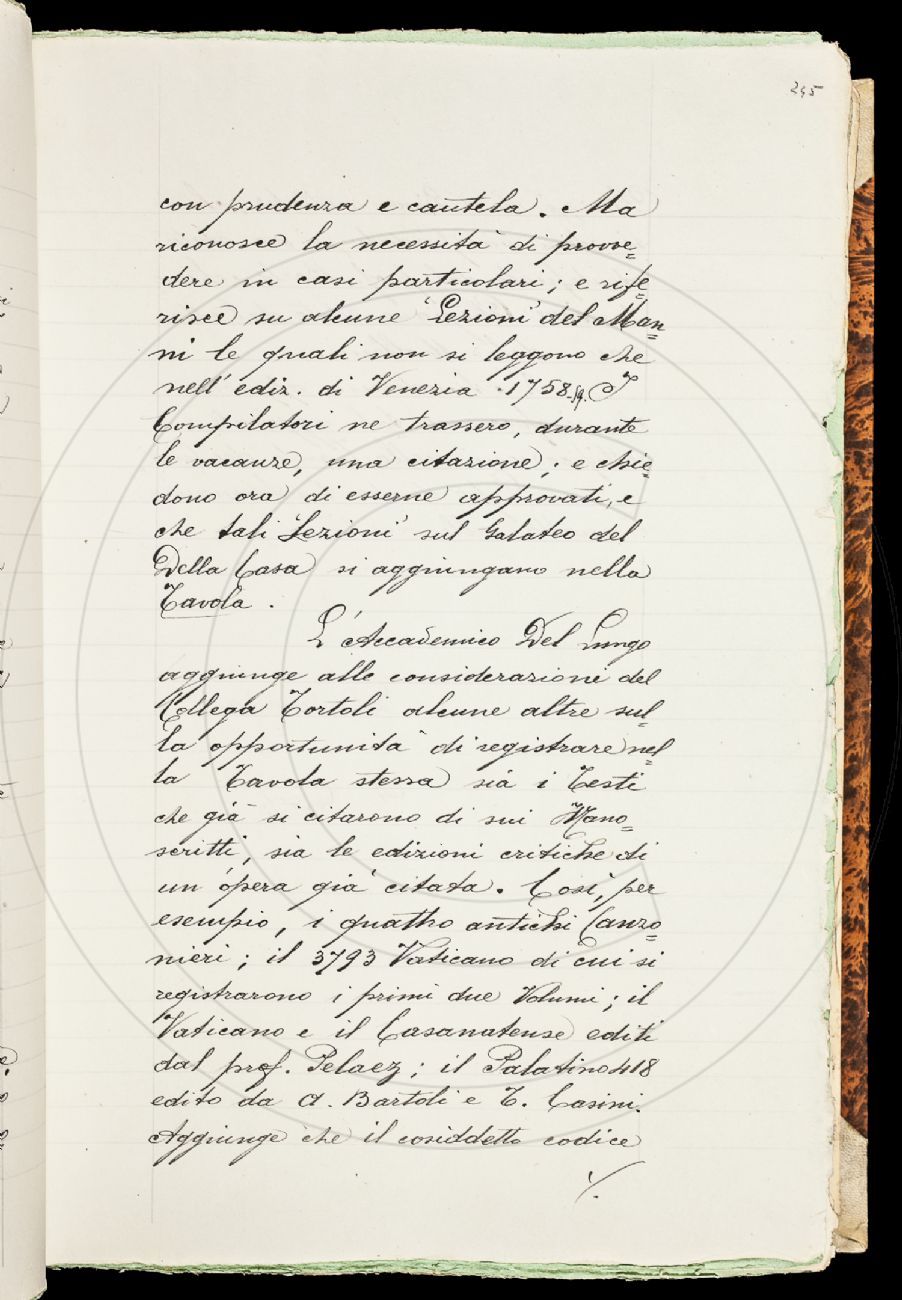 245
con prudenza e cautela. Ma
riconosce la necessità di provve=
dere in casi particolari; e rife=
risce su alcune 'Lezioni' del Man=
ni le quali non si leggono che
nell'ediz. di Venezia 1758-59. I
Compilatori ne trassero, durante
le vacanze, una citazione; e chie=
dono ora di esserne approvati, e
che tali 'Lezioni' sul Galateo del
Della Casa si aggiungano nella
Tavola.
L'Accademico Del Lungo
aggiunge alle considerazioni del
Collega Tortoli alcune altre sul=
la opportunità di registrare nel=
la Tavola stessa sia i Testi
che già si citarono di sui Mano=
scritti, sia le edizioni critiche di
un'opera già citata. Così, per
esempio, i quattro antichi Canzo=
nieri; il 3793 Vaticano di cui si
registrarono i primi due Volumi; il
Vaticano e il Casanatense editi
dal prof. Pelaez; il Palatino 418
edito da A. Bartoli e T. Casini.
Aggiunge che il cosiddetto codice
./.